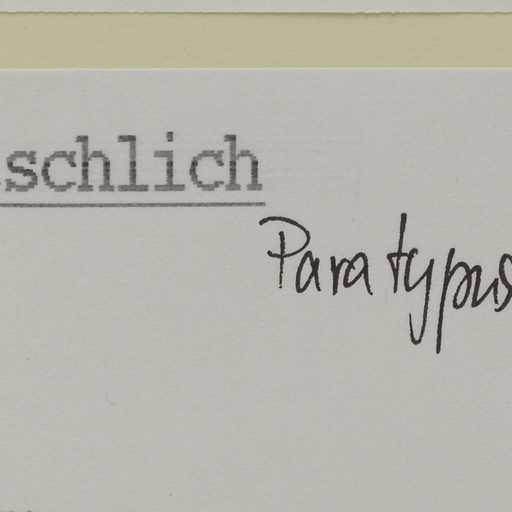 schlich
Paratypus